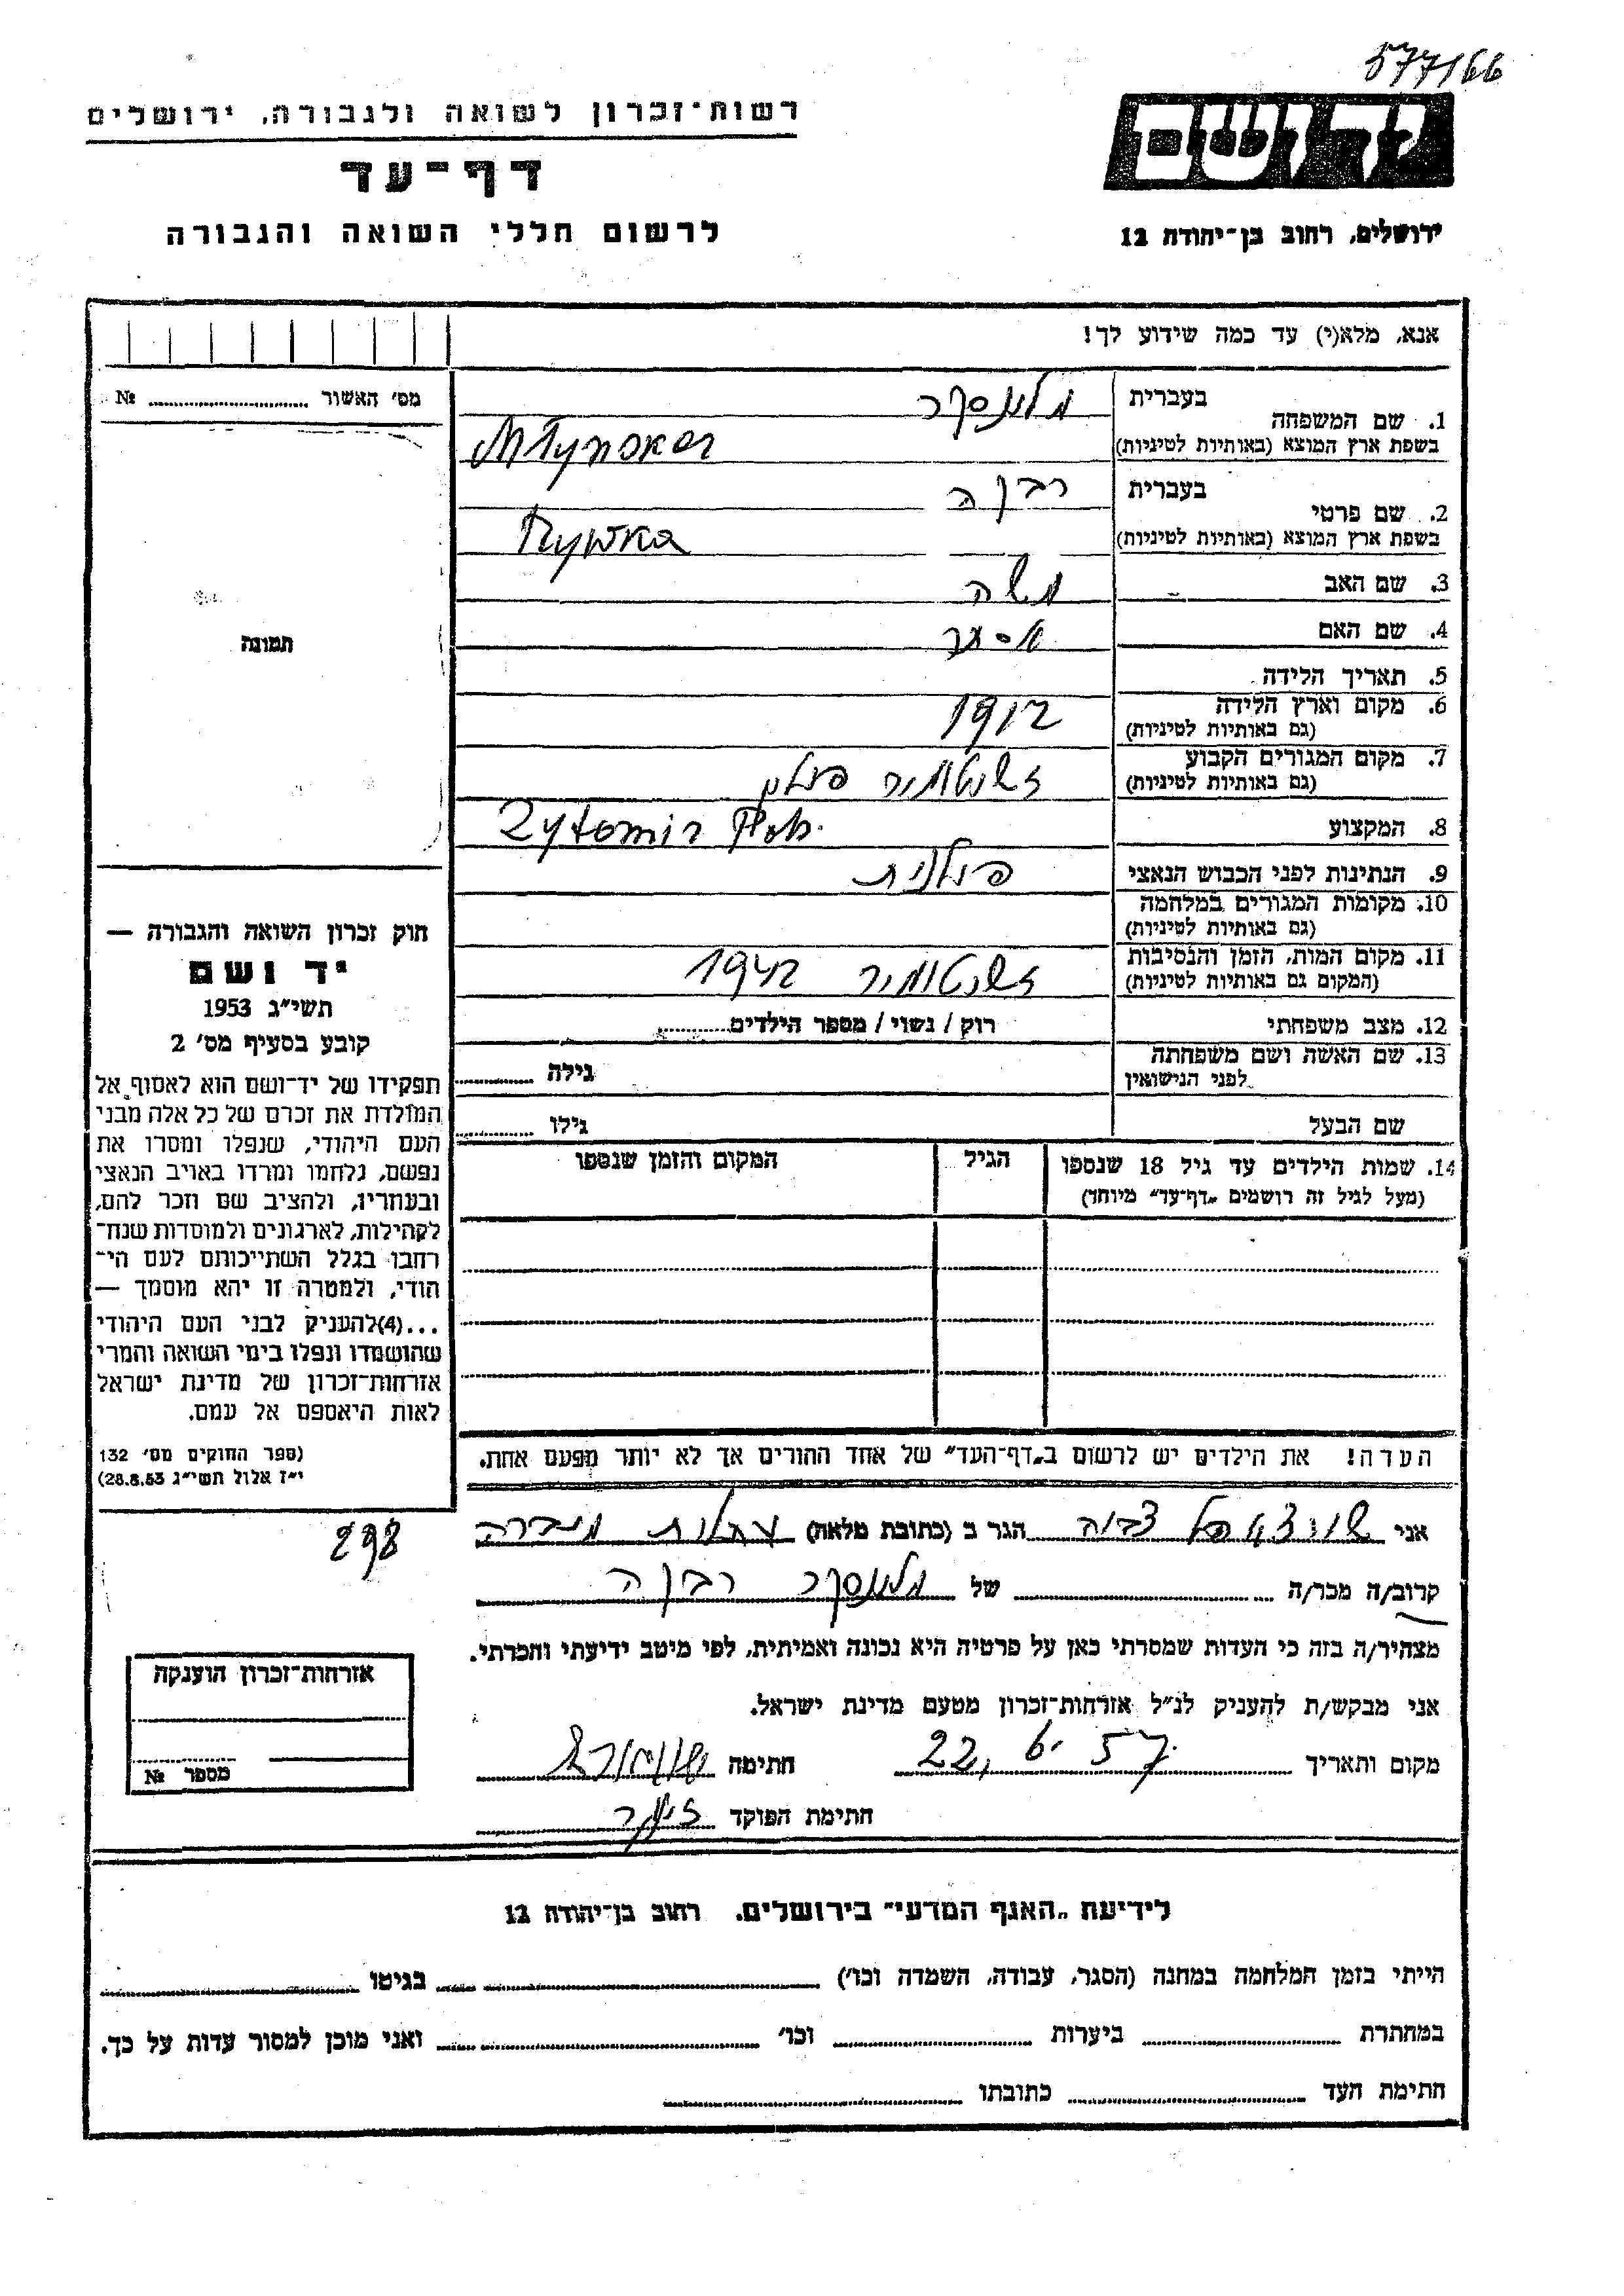 577166
רשות־זכרון לשואה ולגבורה, ירושלים
דף־עד
לרשום חללי השואה והגבורה
יד ושם
ירושלים, רחוב בן־יהודה 12
אנא, מלא(י) עד כמה שידוע לך!
1. שם המשפחה בעברית מלינסקר
בשפת ארץ המוצא (באותיות לטיניות) Młynsker
2. שם פרטי בעברית רבקה
בשפת ארץ המוצא (באותיות לטיניות)
3. שם האב משה
4. שם האם אסתר
5. תאריך הלידה
6. מקום וארץ הלידה 1912
(גם באותיות לטיניות)
7. מקום המגורים הקבוע זשיטומיר פולין
(גם באותיות לטיניות)
8. המקצוע Zytomir
9. הנתינות לפני הכבוש הנאצי פולנית
10. מקומות המגורים במלחמה
(גם באותיות לטיניות)
11. מקום המות, הזמן והנסיבות זשיטומיר 1942
(המקום גם באותיות לטיניות)
12. מצב משפחתי רוק / נשוי / מספר הילדים
13. שם האשה ושם משפחתה לפני הנישואין גילה
שם הבעל גילו
14. שמות הילדים עד גיל 18 שנספו הגיל המקום והזמן שנספו
(מעל לגיל זה רושמים „דף־עד" מיוחד)
הערה! את הילדים יש לרשום ב„דף־העד" של אחד ההורים אך לא יותר מפעם אחת.
מס' האשור №
תמונה
חוק זכרון השואה והגבורה —
יד ושם
תשי"ג 1953
קובע בסעיף מס' 2
תפקידו של יד־ושם הוא לאסוף אל
המולדת את זכרם של כל אלה מבני
העם היהודי, שנפלו ומסרו את
נפשם, נלחמו ומרדו באויב הנאצי
ובעוזריו, ולהציב שם וזכר להם,
לקהילות, לארגונים ולמוסדות שנח־
רחבו בגלל השתייכותם לעם הי־
הודי, ולמטרה זו יהא מוסמך —
...(4)להעניק לבני העם היהודי
שהושמדו ונפלו בימי השואה והמרי
אזרחות־זכרון של מדינת ישראל
לאות היאספם אל עמם.
(ספר החוקים מס' 132
י"ז אלול תשי"ג 28.8.53)
298
אני הגר ב (כתובת מלאה)
קרוב/ה מכר/ה של מלינסקר רבקה
מצהיר/ה בזה כי העדות שמסרתי כאן על פרטיה היא נכונה ואמיתית, לפי מיטב ידיעתי והכרתי.
אני מבקש/ת להעניק לנ"ל אזרחות־זכרון מטעם מדינת ישראל.
מקום ותאריך 22.6.57 חתימה
חתימת הפוקד
אזרחות־זכרון הוענקה
מספר №
לידיעת „האגף המדעי" בירושלים, רחוב בן־יהודה 12
הייתי בזמן המלחמה במחנה (הסגר, עבודה, השמדה וכו') בגיטו
במחתרת ביערות וכו' ואני מוכן למסור עדות על כך.
חתימת העד כתובתו